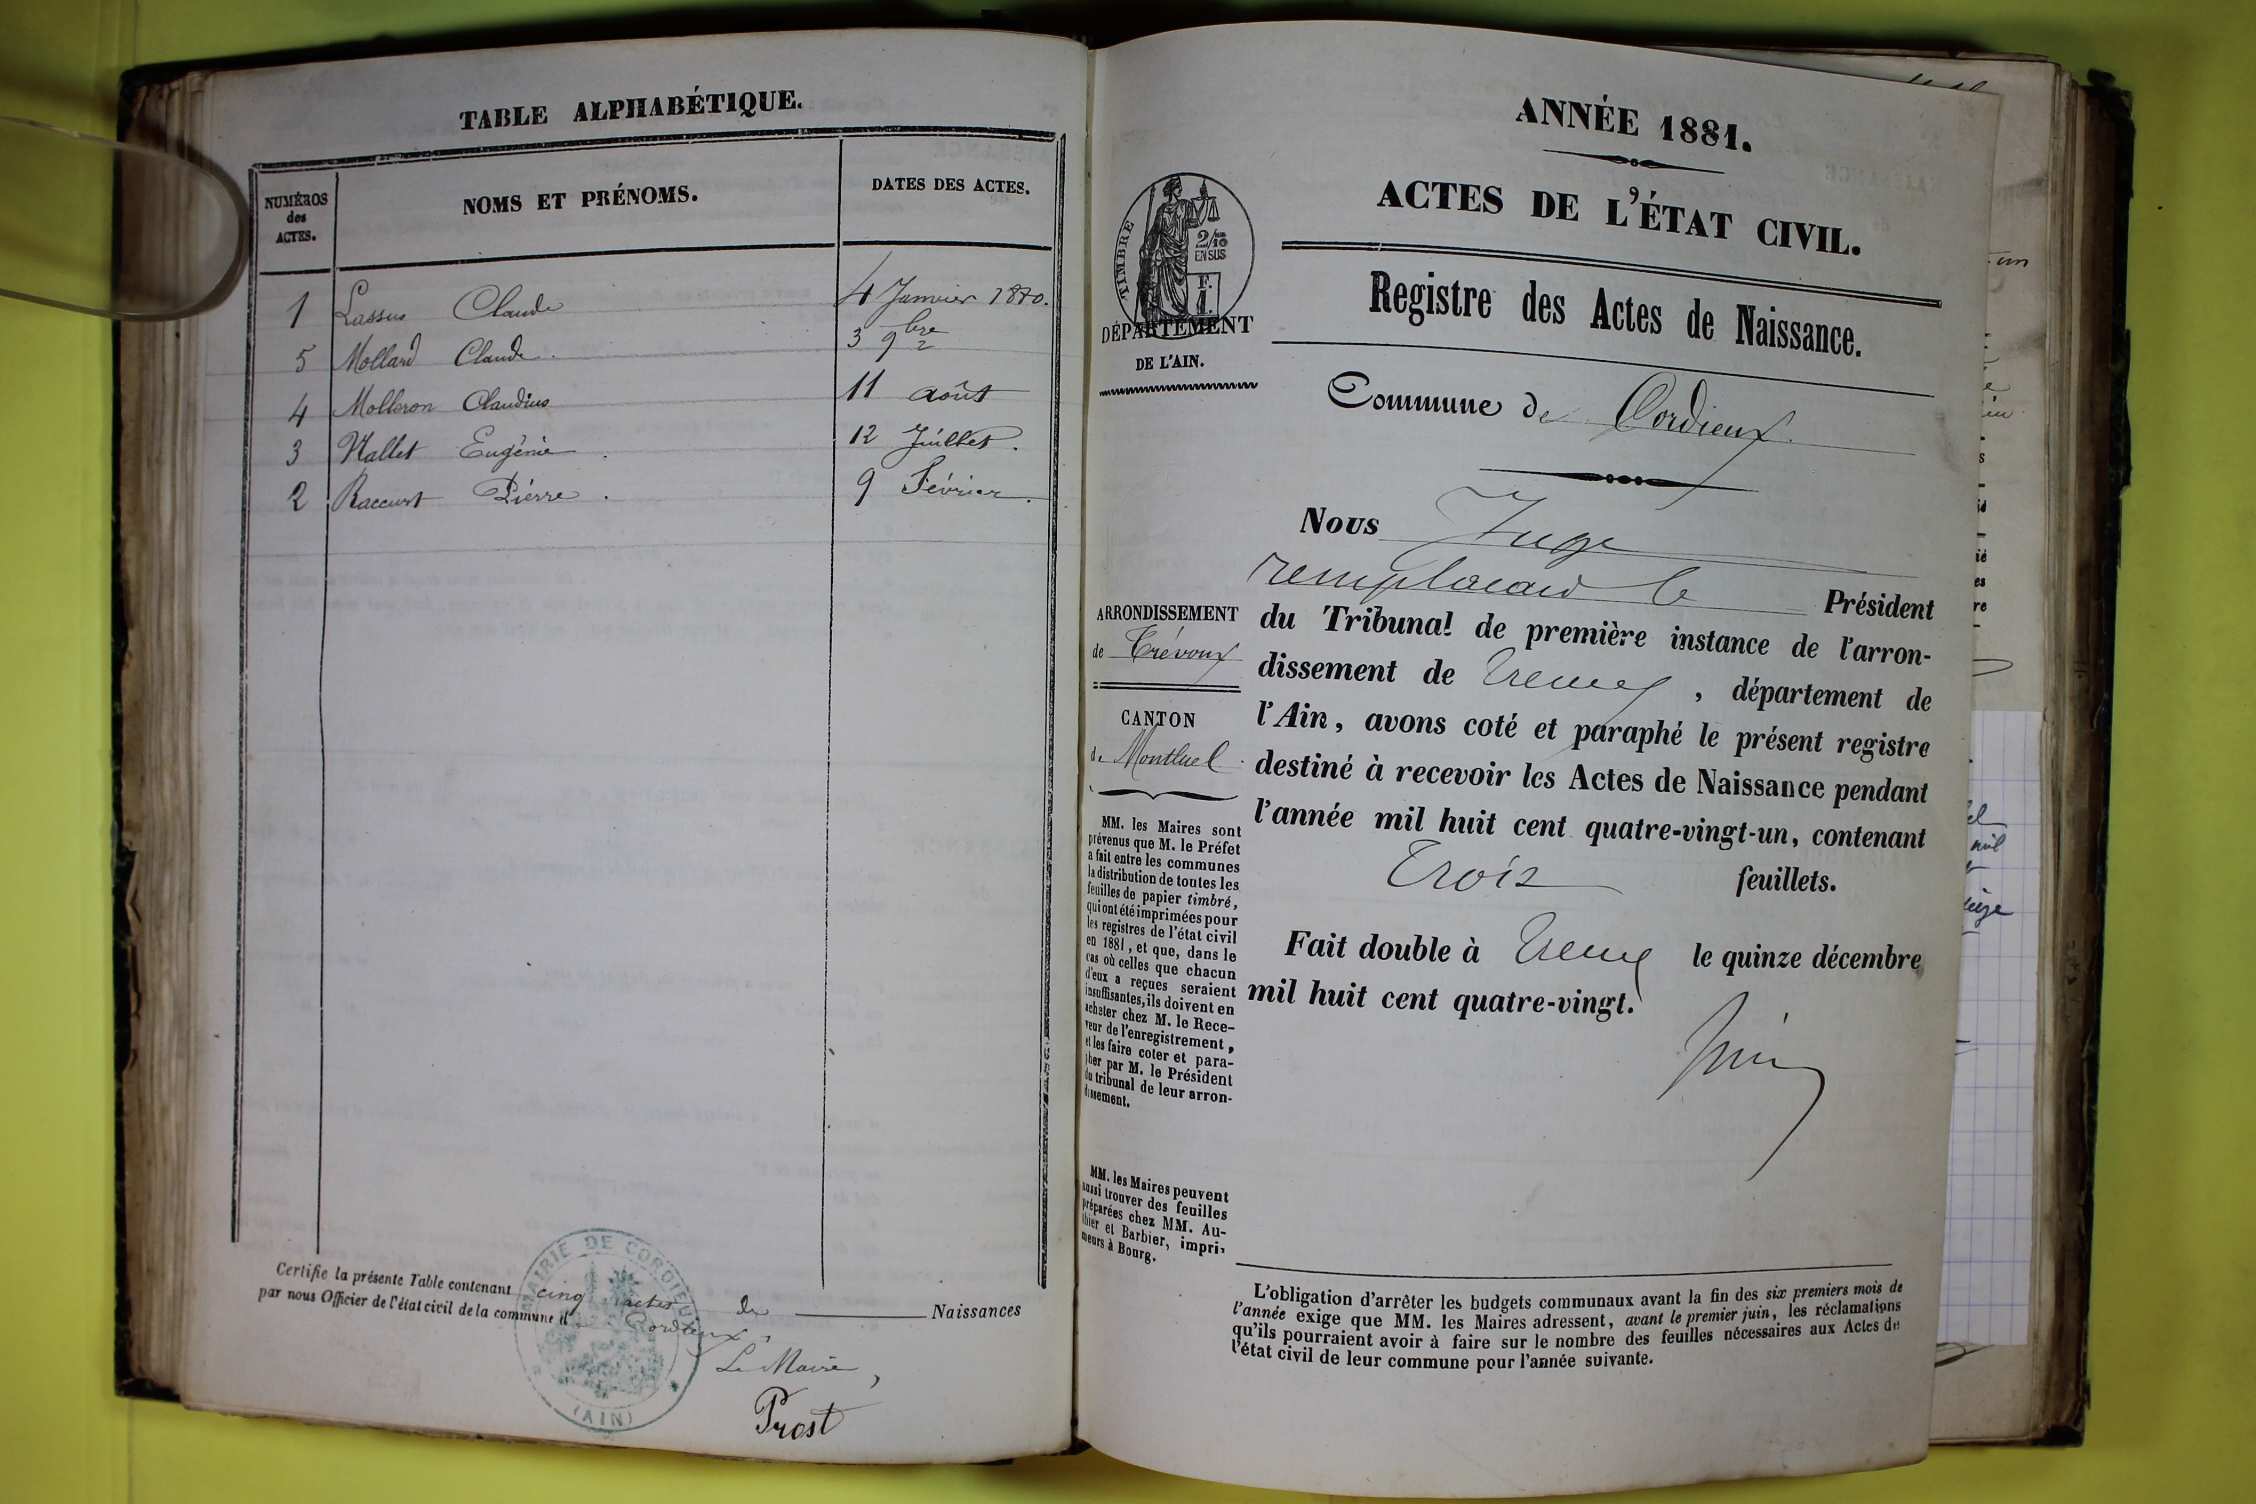 TABLE ALPHABÉTIQUE.
NUMÉROS
des
ACTES.
NOMS ET PRÉNOMS.
DATES DES ACTES.
1 Lassus Claude 4 Janvier 1880.
5 Mollard Claude. 3 9bre
4 Molleron Claudius 11 août
3 Nallet Eugénie . 12 Juillet.
2 Raccurt Piérre . 9 Février.
Certifie la présente Table contenant cinq actes de Naissances
par nous Officier de l'état civil de la commune d Cordieux,
Le Maire,
Prost
MAIRIE DE CORDIEUX
(AIN)
ANNÉE 1881.
ACTES DE L'ÉTAT CIVIL.
Registre des Actes de Naissance.
TIMBRE
2/10
EN SUS
F.
1.
DÉPARTEMENT
DE L'AIN.
Commune de Cordieux.
Nous Juge
remplacant le Président
du Tribunal de première instance de l'arron-
dissement de Trevoux, département de
l'Ain, avons coté et paraphé le présent registre
destiné à recevoir les Actes de Naissance pendant
l'année mil huit cent quatre-vingt-un, contenant
Trois feuillets.
Fait double à Trevoux le quinze décembre
mil huit cent quatre-vingt.
ARRONDISSEMENT
de Trévoux
CANTON
de Montluel
MM. les Maires sont
prévenus que M. le Préfet
a fait entre les communes
la distribution de toutes les
feuilles de papier timbré,
qui ont été imprimées pour
les registres de l'état civil
en 1881, et que, dans le
cas où celles que chacun
d'eux a reçues seraient
insuffisantes, ils doivent en
acheter chez M. le Rece-
veur de l'enregistrement,
et les faire coter et para-
pher par M. le Président
du tribunal de leur arron-
dissement.
MM. les Maires peuvent
aussi trouver des feuilles
préparées chez MM. Au-
thier et Barbier, impri-
meurs à Bourg.
L'obligation d'arrêter les budgets communaux avant la fin des six premiers mois de
l'année exige que MM. les Maires adressent, avant le premier juin, les réclamations
qu'ils pourraient avoir à faire sur le nombre des feuilles nécessaires aux Actes de
l'état civil de leur commune pour l'année suivante.